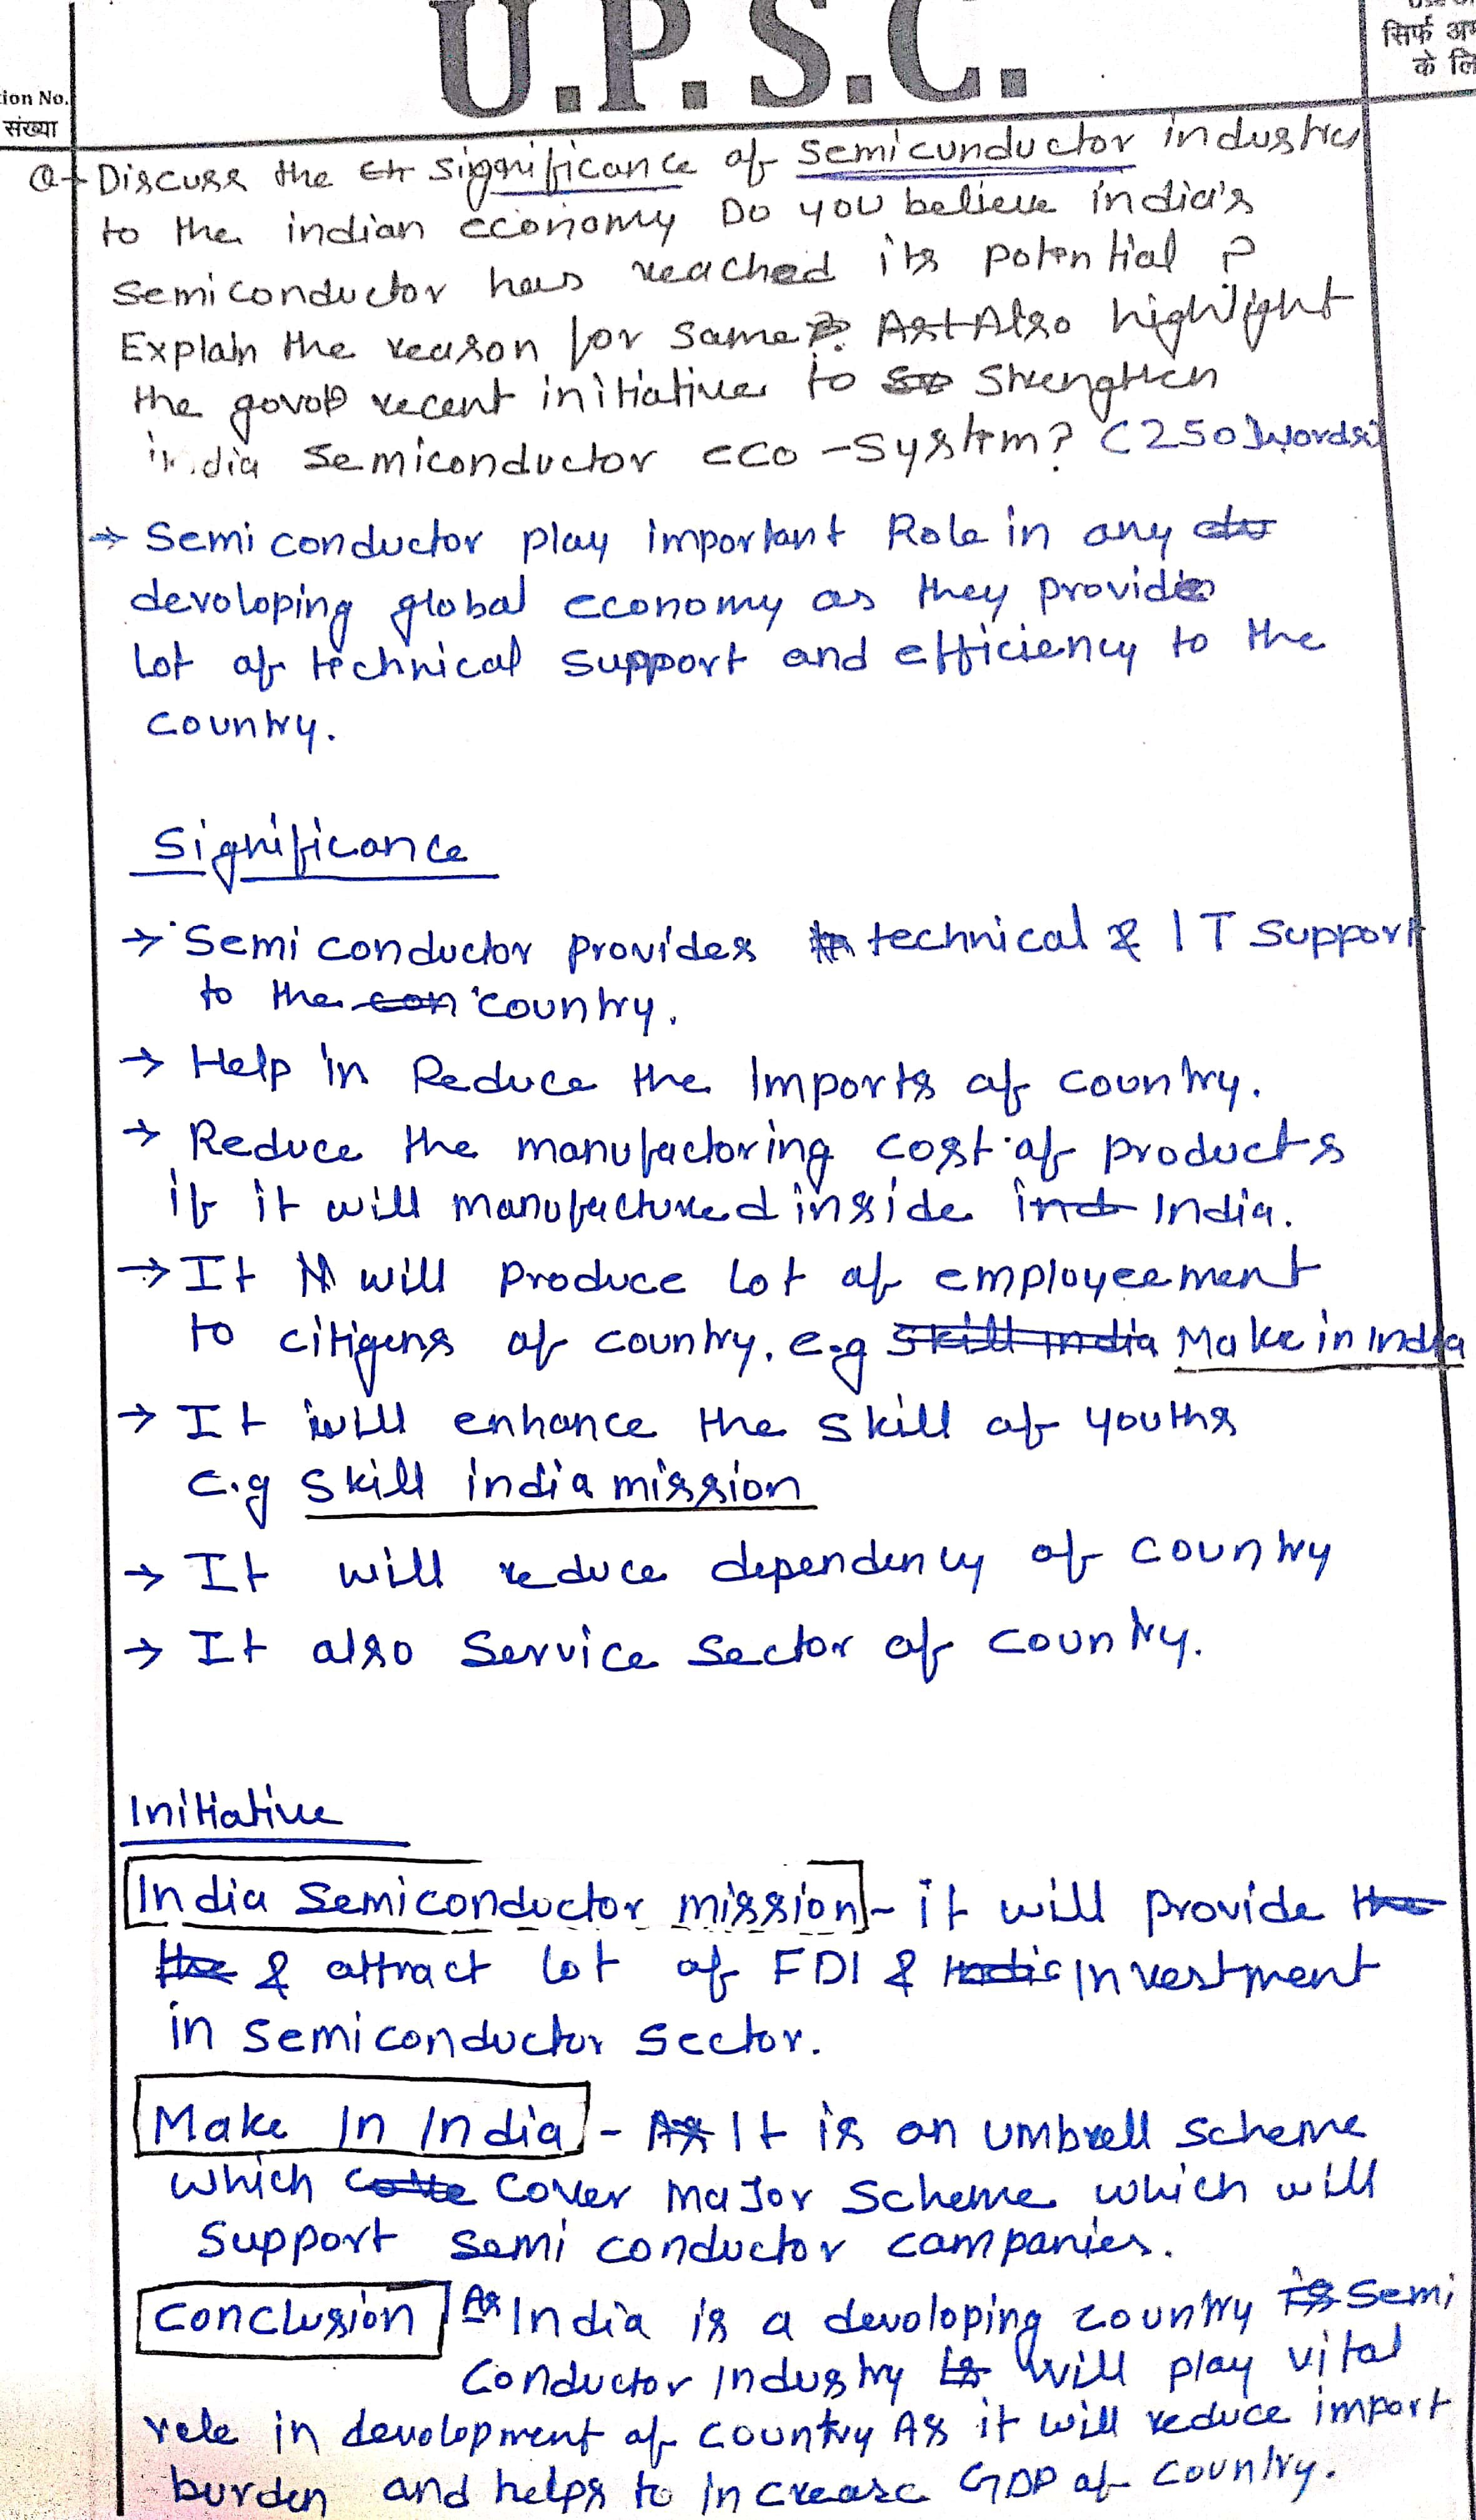 U.P.S.C.
सिर्फ
के लि
tion No.
संख्या
Q → Discuss the significance of semicunductor industries
to the indian economy Do you believe india's
semiconductor has reached its potential ?
Explain the reason for same? Also highlight
the govt recent initiatives to strengthen
india semiconductor eco-system? (250 words)
→ Semi conductor play important Role in any
devoloping global economy as they provide
lot of technical support and efficiency to the
country.
Significance
→ Semi conductor provides technical & IT support
to the country.
→ Help in Reduce the Imports of country.
→ Reduce the manufactoring cost of products
if it will manufactured inside India.
→ It will produce lot of employeement
to citigens of country. e.g Skill India Make in India
→ It will enhance the skill of youths
e.g Skill india mission
→ It will reduce dependency of country
→ It also Service Sector of country.
Initiative
India Semiconductor mission - it will provide the
the & attract lot of FDI & Investment
in semiconductor sector.
Make In India - As It is an umbrell scheme
which cover major scheme which will
support semi conductor companies.
Conclusion As India is a devoloping country is Semi
Conductor Industry will play vital
role in devolopment of country As it will reduce import
burden and helps to increase GDP of country.